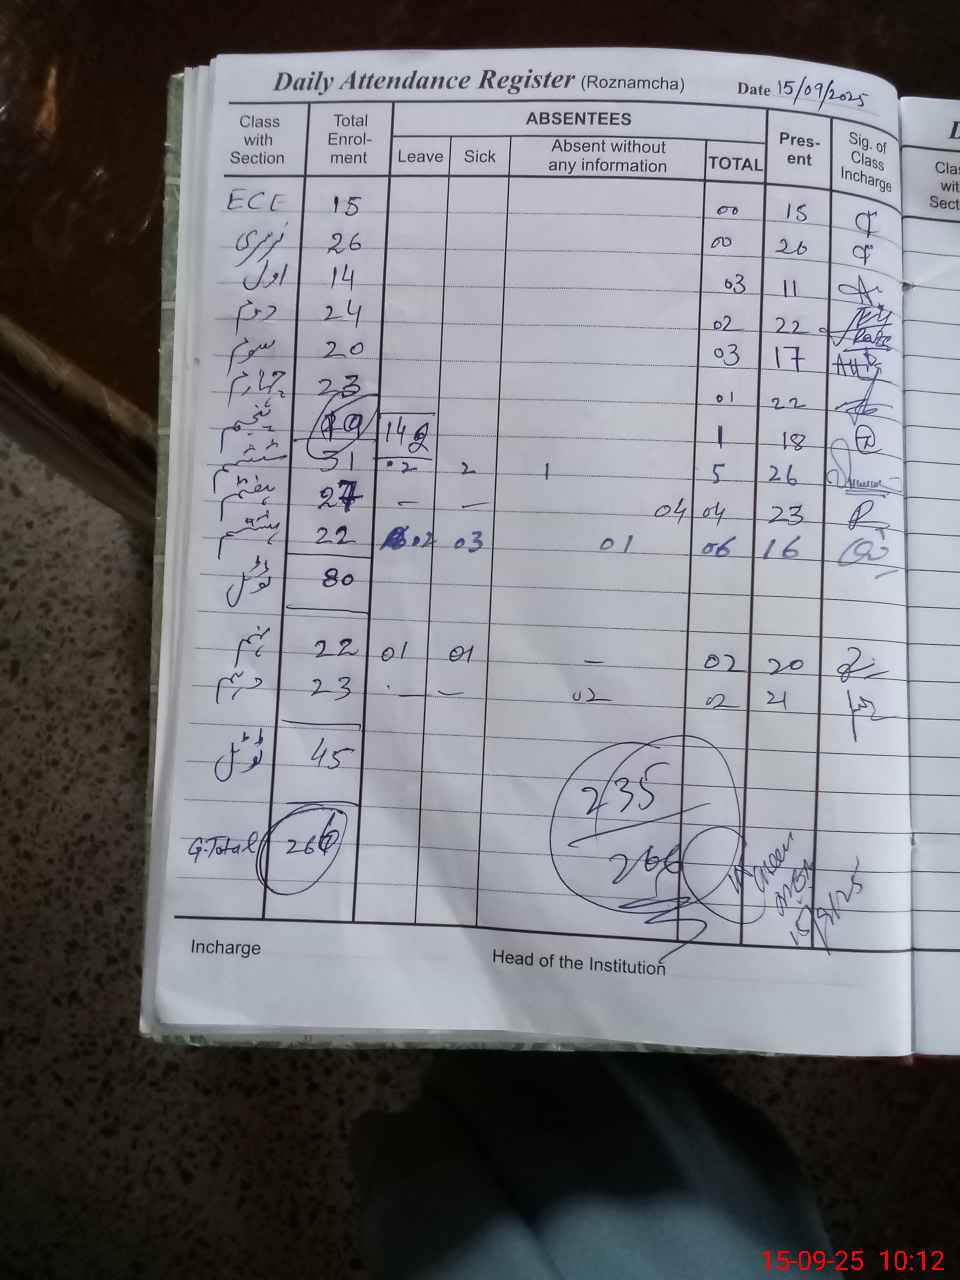 Daily Attendance Register (Roznamcha) Date 15/09/2025
Class with Section Total Enrol-ment ABSENTEES Pres-ent Sig. of Class Incharge
Leave Sick Absent without any information TOTAL
ECE 15 00 15
نرسری 26 00 26
اول 14 03 11
دوئم 24 02 22
سوئم 20 03 17
چہارم 23 01 22
پنجم 19 142 1 18
ششم 31 02 2 1 5 26
ہفتم 27 — — 04 04 23
ہشتم 22 02 03 01 06 16
ٹوٹل 80
نہم 22 01 01 — 02 20
دہم 23 — — 02 02 21
ٹوٹل 45
235
266
G.Total 266
15/9/25
Incharge
Head of the Institution
D
Clas
wit
Sect
15-09-25 10:12